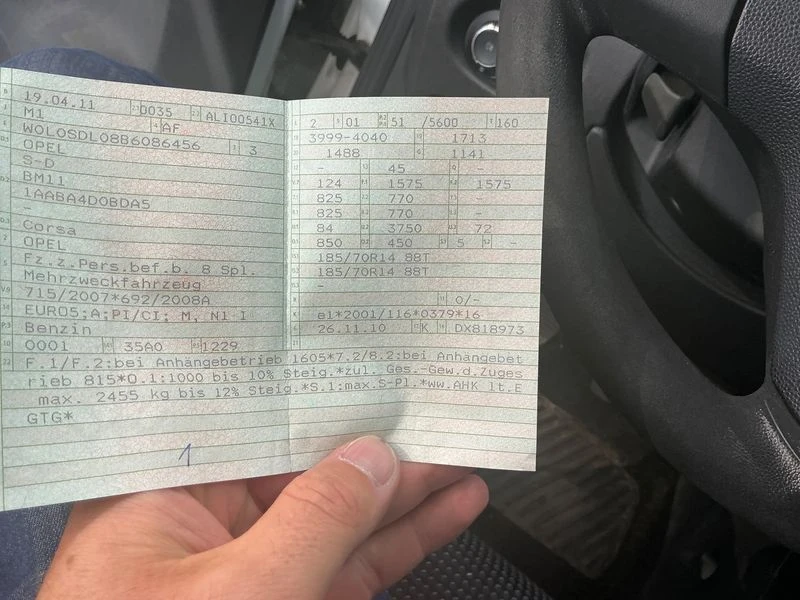 19.04.11 0035 ALI00541X
M1 AF
W0L0SDL08B6086456 3
OPEL
S-D
BM11
1AABA4D0BDA5
-
Corsa
OPEL
Fz.z.Pers.bef.b. 8 Spl.
Mehrzweckfahrzeug
715/2007*692/2008A
EURO5;A;PI/CI; M, N1 I
Benzin
0001 35A0 1229
2 01 51 /5600 160
3999-4040 1713
1488 1141
- 45 -
124 1575 1575
825 770 -
825 770 -
84 3750 72
850 450 5 -
185/70R14 88T
185/70R14 88T
-
0/-
e1*2001/116*0379*16
26.11.10 K DX818973
F.1/F.2:bei Anhängebetrieb 1605*7.2/8.2:bei Anhängebet
rieb 815*O.1:1000 bis 10% Steig.*zul. Ges.-Gew.d.Zuges
max. 2455 kg bis 12% Steig.*S.1:max.S-Pl.*ww.AHK lt.E
GTG*
1